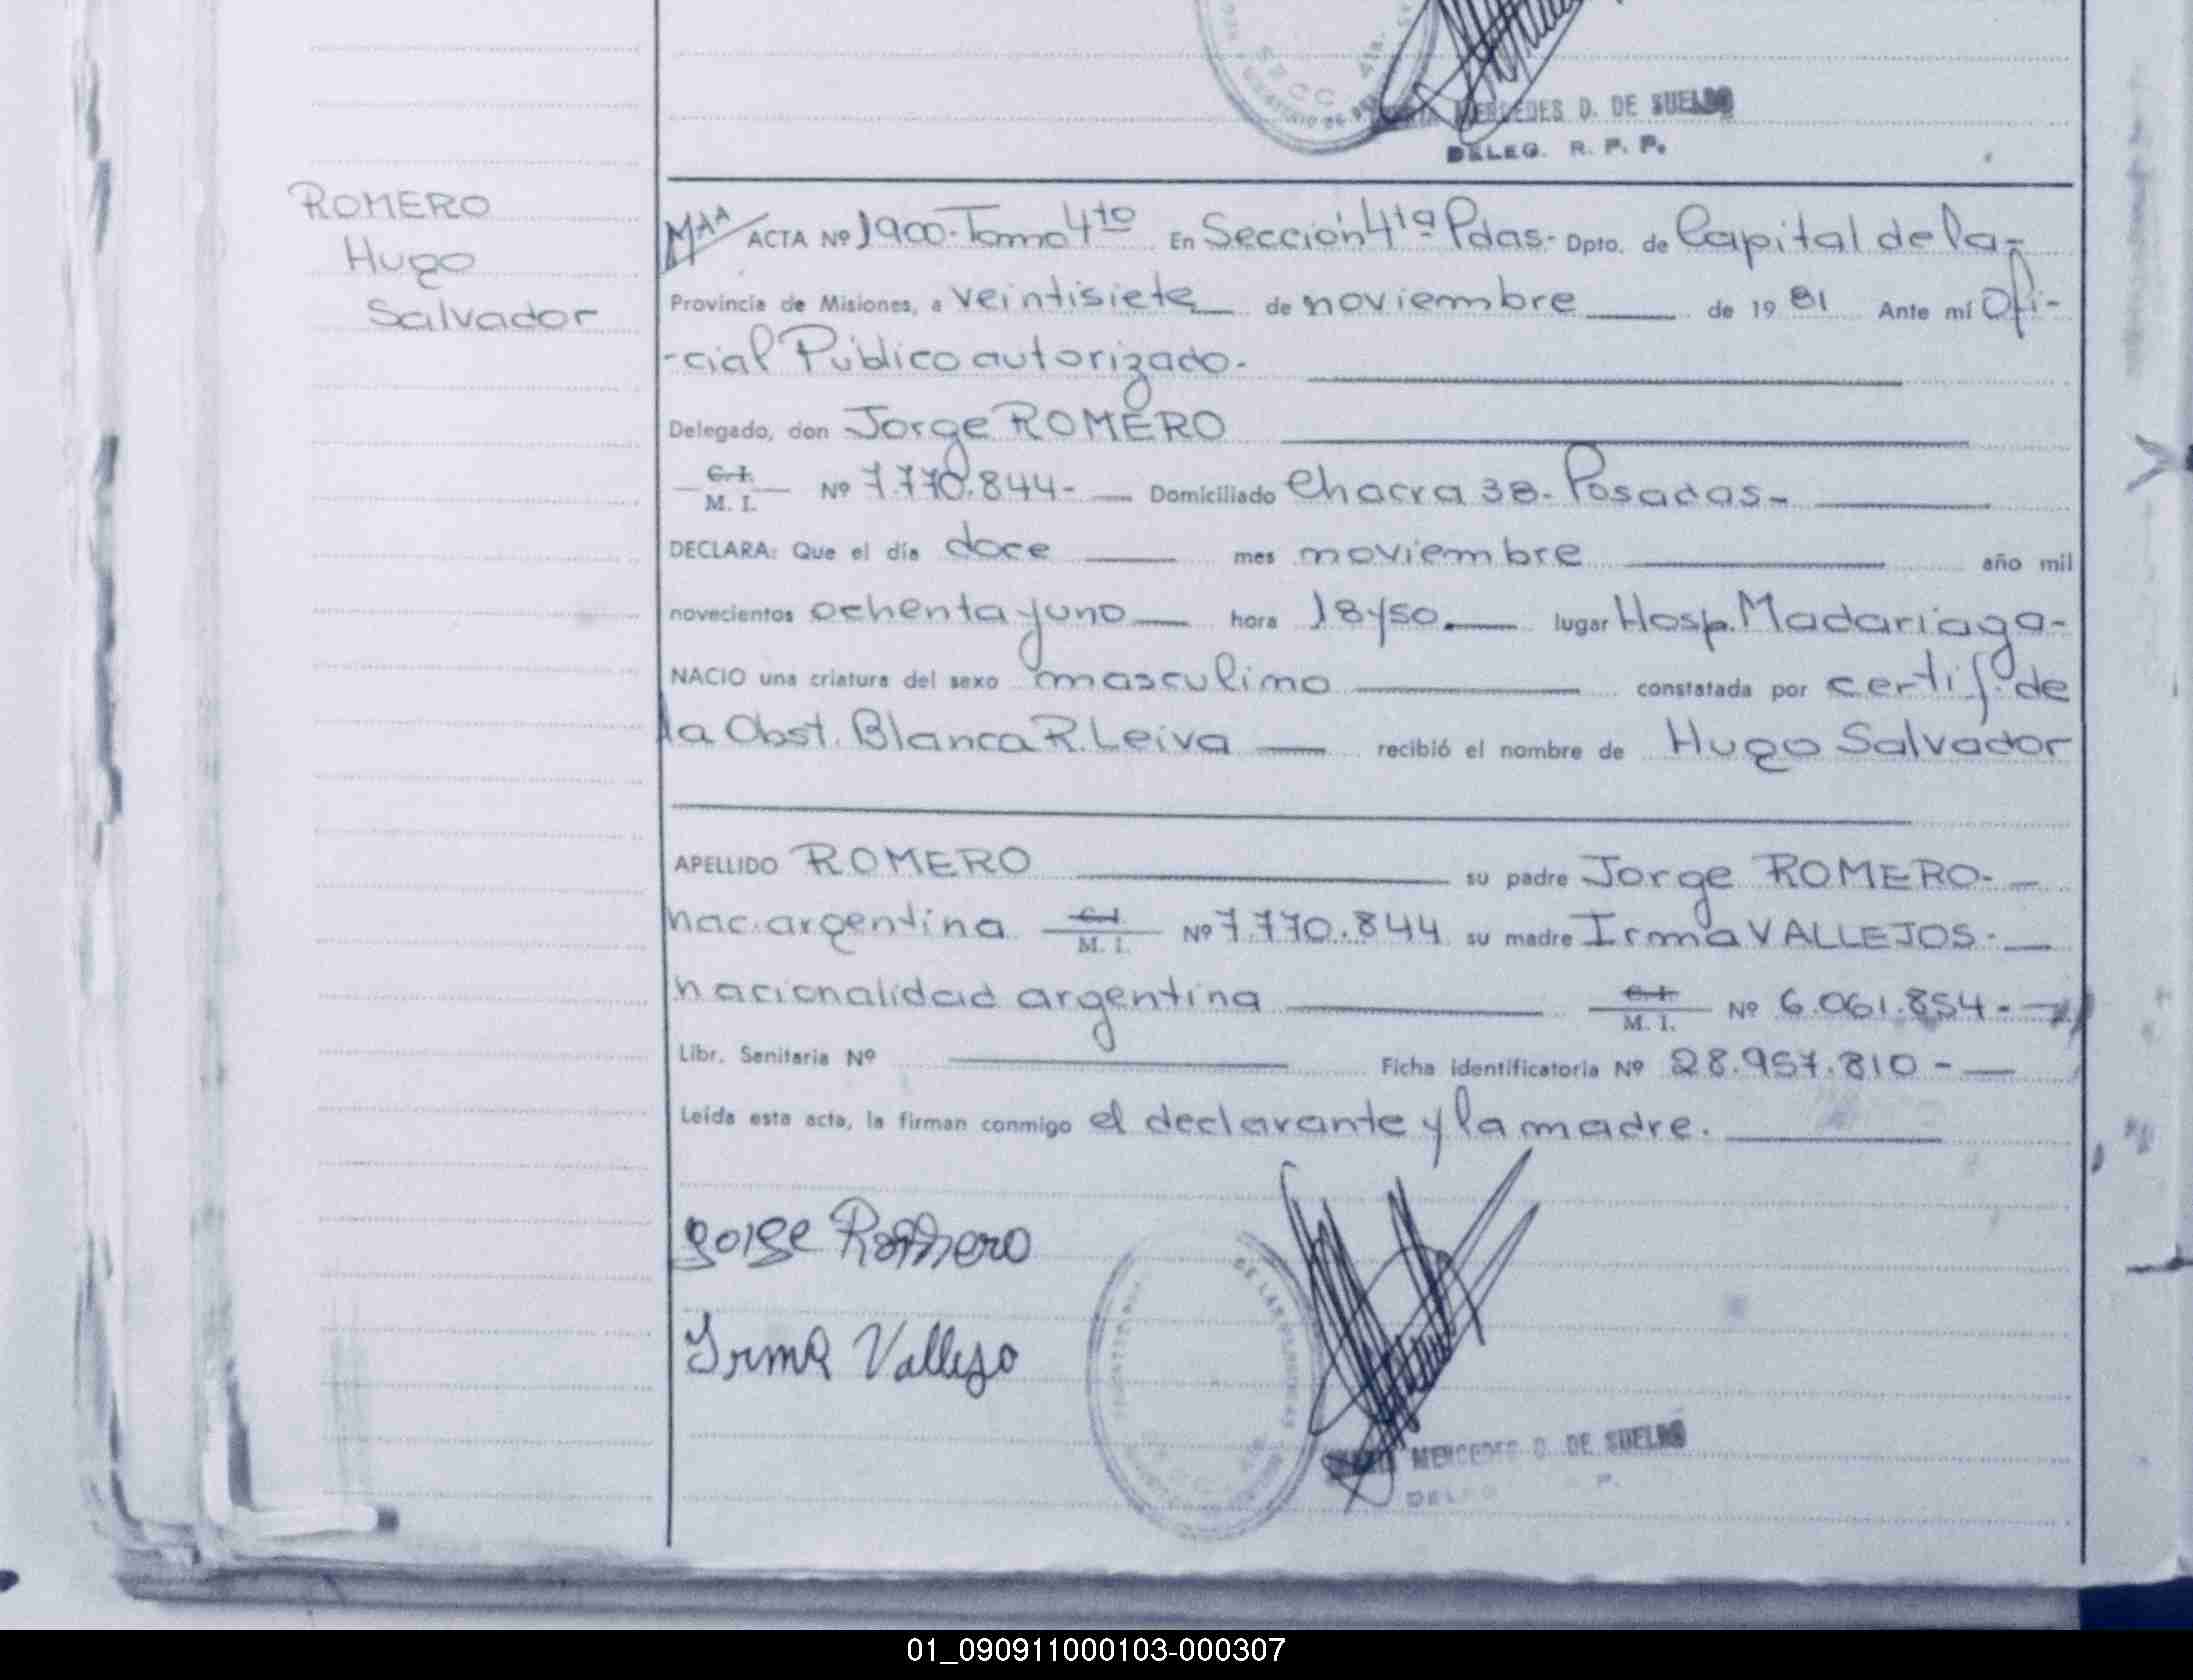 SECC. 4ta.
MERCEDES D. DE SUELDO
DELEG. R. P. P.
ROMERO
Hugo
Salvador
ACTA Nº 1900-Tomo 4to En Sección 4ta Pdas- Dpto. de Capital de la-
Provincia de Misiones, a veintisiete de noviembre de 19 81 Ante mí Ofi-
-cial Público autorizado-
Delegado, don Jorge ROMERO
C. I.
M. I. Nº 7.770.844- Domiciliado Chacra 38- Posadas-
DECLARA: Que el día doce mes noviembre año mil
novecientos ochenta y uno hora 18 y 50. lugar Hosp. Madariaga-
NACIO una criatura del sexo masculino constatada por certif. de
la Obst. Blanca R. Leiva recibió el nombre de Hugo Salvador
APELLIDO ROMERO su padre Jorge ROMERO-
nac. argentina C. I.
M. I. Nº 7.770.844 su madre Irma VALLEJOS-
nacionalidad argentina C. I.
M. I. Nº 6.061.854-
Libr. Sanitaria Nº Ficha identificatoria Nº 28.957.810-
Leída esta acta, la firman conmigo el declarante y la madre.
Jorge Romero
Irma Vallejo
DE LAS PERSONAS
MERCEDES D. DE SUELDO
DELEG P.
01_090911000103-000307